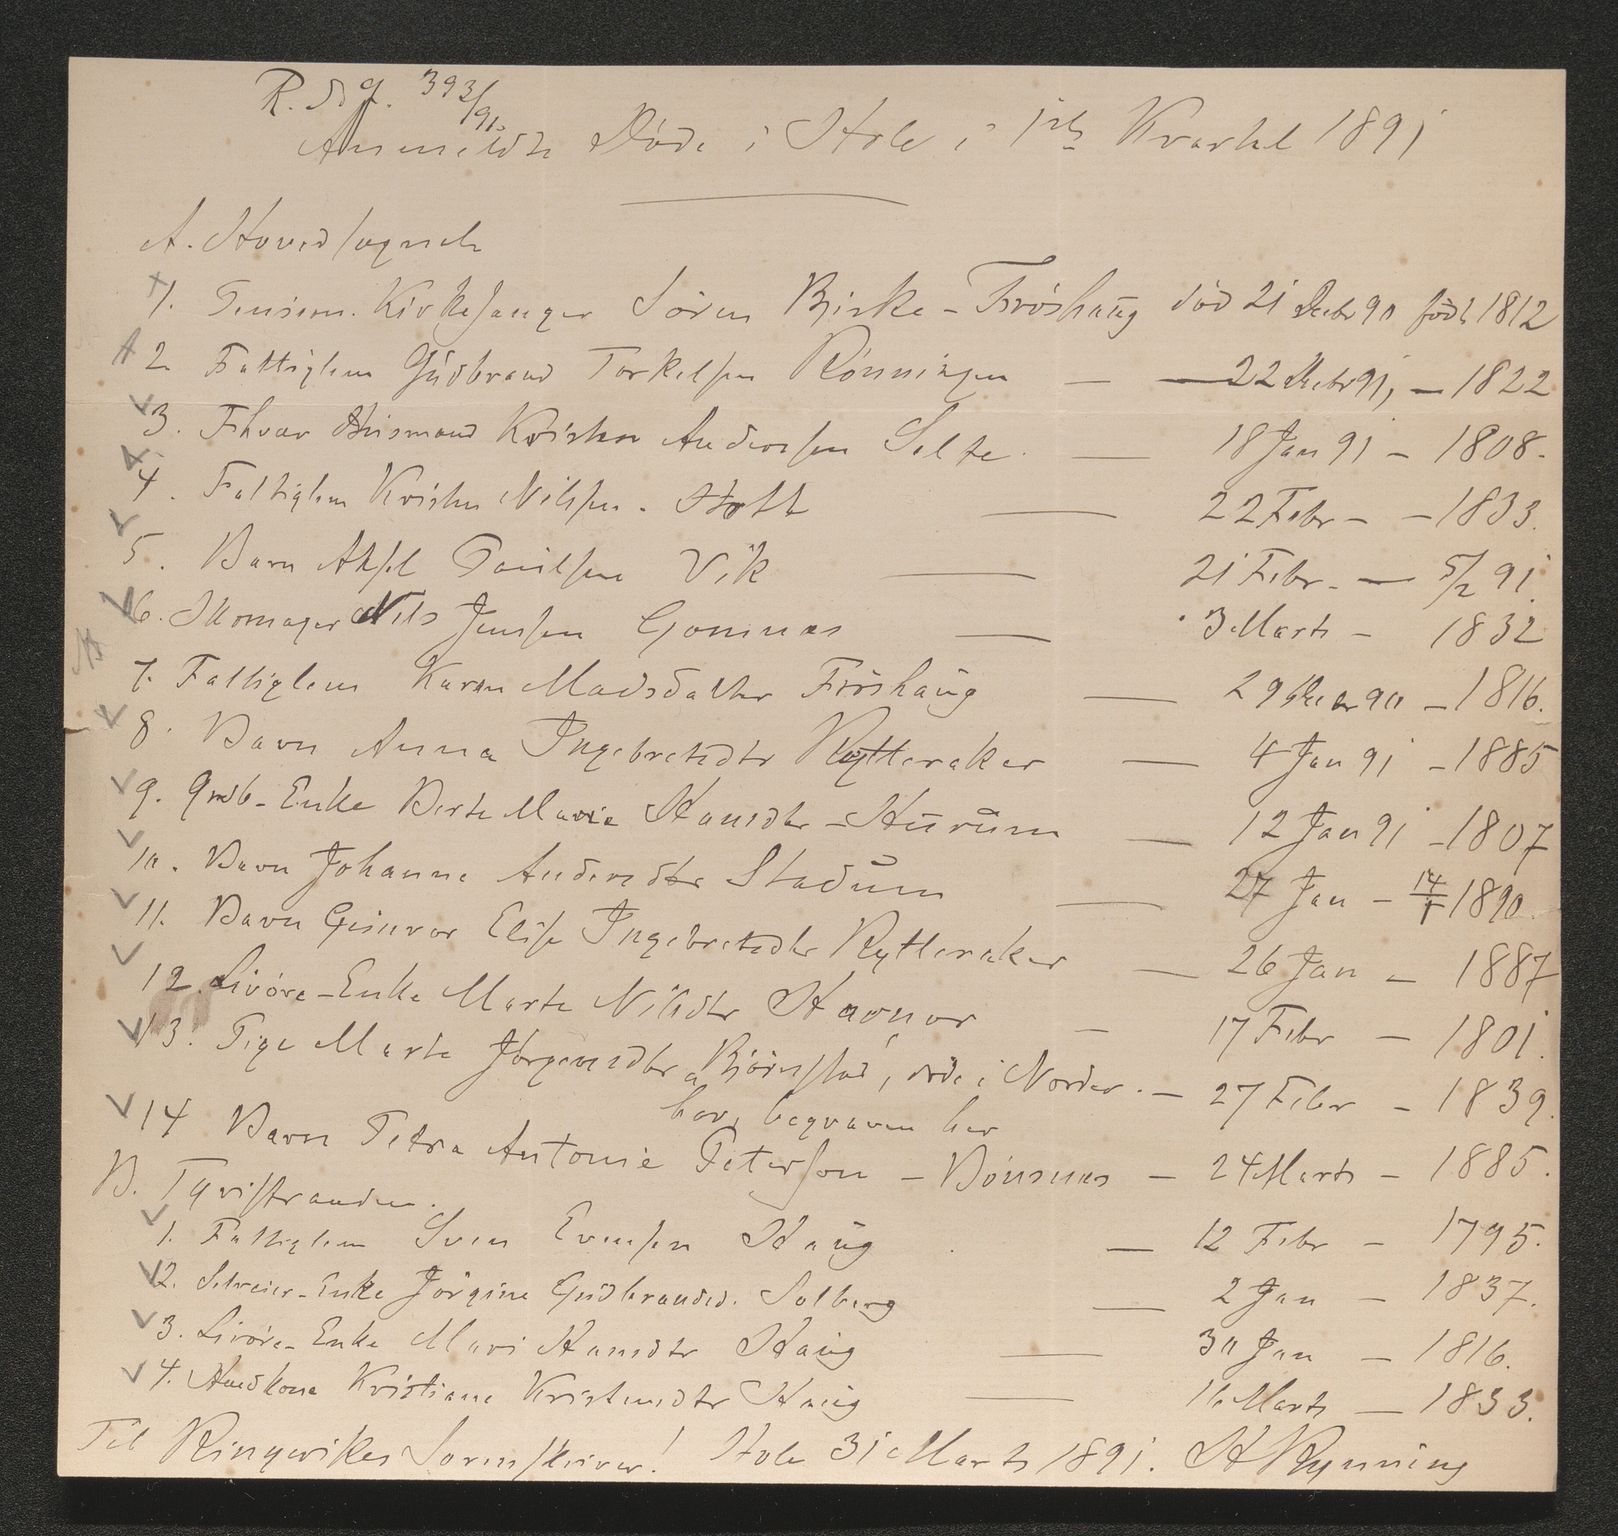 R. 393/91.
Anmeldte Døde i Hole i 1ste Kvartal 1891
A. Hovedsognet
1. Pension. Kirkesanger Sören Birke - Fröshaug död 21 Decbr 90 född 1812
2. Fattiglem Gudbrand Torkelsen Rönningen — — 22 Decbr 91, — 1822
3. Fhvær Husmand Kristen Andersen Selte. — 18 Jan 91 — 1808.
4. Fattiglem Kristen Nilsen. — 22 Febr — — 1833.
5. Barn Aksel Paulsen Vik — 21 Febr. — 5/2 91.
6. Skomager Nils Jensen Gomnæs — 3 Marts — 1832
7. Fattiglem Karen Madsdatter Fröshaug — 29 Decbr 90 — 1816.
8. Barn Anna Ingebretsdtr Rytteraker — 4 Jan 91 — 1885
9. Grdb- Enke Berte Marie Hansdtr - Hurum — 12 Jan 91 — 1807
10. Barn Johanne Andersdtr Stadum — 27 Jan — 14/1 1890.
11. Barn Gunvor Elise Ingebretsdtr Rytteraker — 26 Jan — 1887
12. Livöre-Enke Marte Nilsdtr Havnor — 17 Febr — 1801.
13. Pige Marte Jörgensdtr Björnstad, död i Norder- — 27 Febr — 1839.
hov, begraven her
14 Barn Petra Antonie Peterson — Bönsnæs — 24 Marts — 1885.
B. Tyristranden.
1. Fattiglem Sven Evensen Haug — 12 Febr — 1795.
2. Selveier-Enke Jörgine Gudbrandsd. Solberg — 2 Jan — 1837.
3. Livöre- Enke Mari Hansdtr Haug — 30 Jan — 1816.
4. Kristiane Kristensdtr Haug — 16 Marts — 1833.
Til Ringerikes Sorenskriver! Hole 31 Marts 1891. H Rynning